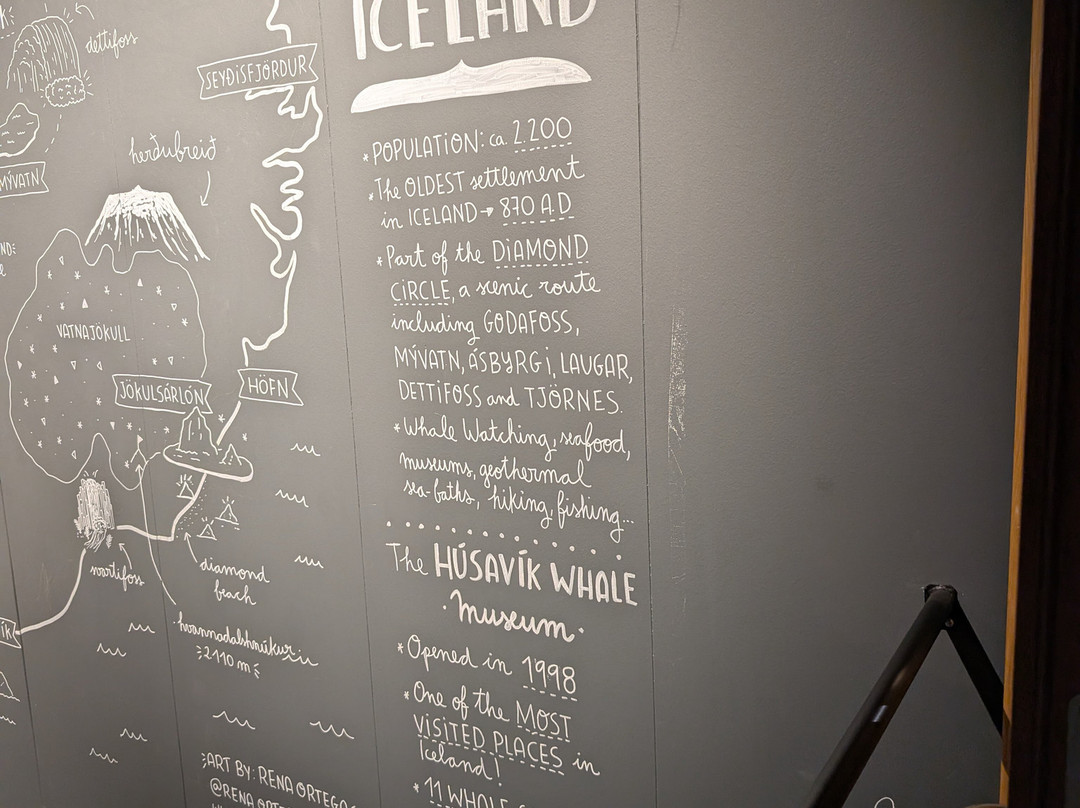 dettifoss
SEYÐISFJÖRÐUR
herðubreið
MÝVATN
VATNAJÖKULL
JÖKULSÁRLÓN
HÖFN
svartifoss
diamond
beach
hvannadalshnúkur
2110 m
ART BY: RENA ORTEGA
ICELAND
* POPULATION: ca. 2.200
* The OLDEST settlement
in ICELAND → 870 A.D
* Part of the DIAMOND
CIRCLE, a scenic route
including GODAFOSS,
MÝVATN, ÁSBYRGI, LAUGAR,
DETTIFOSS and TJÖRNES.
* Whale Watching, seafood,
museums, geothermal
sea-baths, hiking, fishing...
The HÚSAVÍK WHALE
· Museum ·
* Opened in 1998
* One of the MOST
VISITED PLACES in
Iceland!
* 11 WHALE